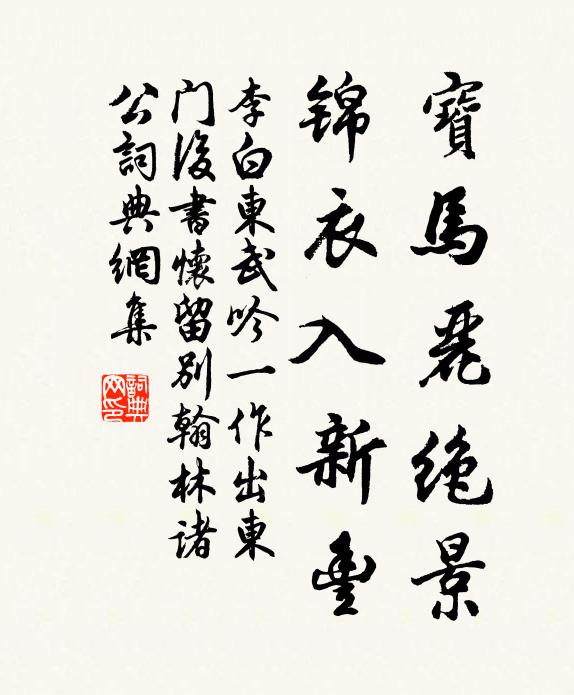 寶馬麗絶景
锦衣入新豊
李白東武吟一作出東
门後書懷留别翰林诸
公詞典網集
詞典
网印